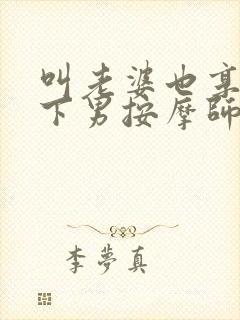 叫老婆也享
下男按摩師
李夢真